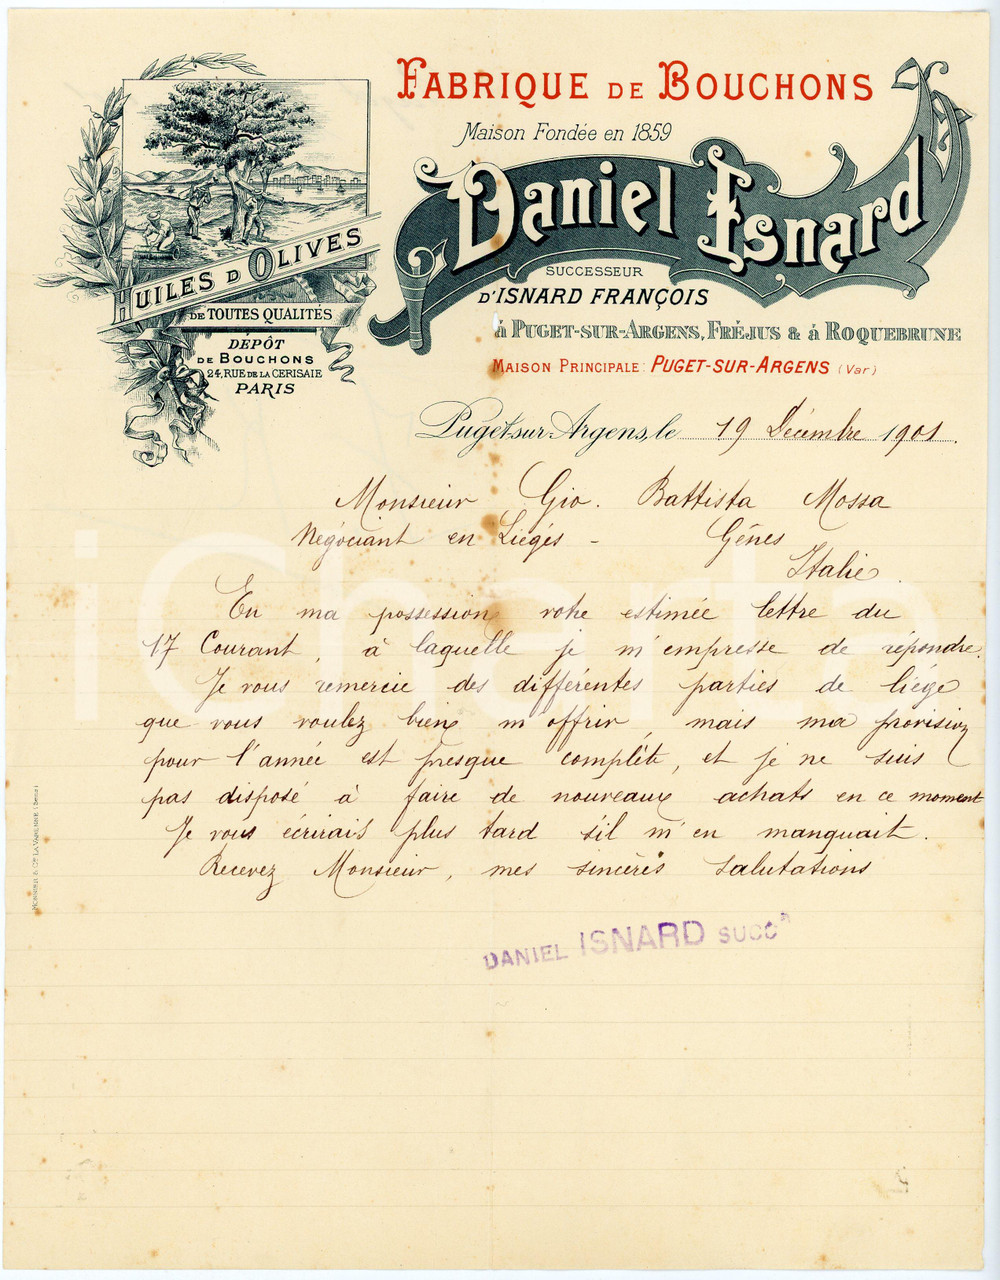 FABRIQUE DE BOUCHONS
Maison Fondée en 1859
Daniel Isnard
SUCCESSEUR
D'ISNARD FRANÇOIS
à PUGET-SUR-ARGENS, FRÉJUS & à ROQUEBRUNE
MAISON PRINCIPALE: PUGET-SUR-ARGENS (Var)
HUILES D'OLIVES
DE TOUTES QUALITÉS
DÉPÔT
DE BOUCHONS
24, RUE DE LA CERISAIE
PARIS
Puget-sur-Argens, le 19 Décembre 1901.
Monsieur Gio. Battista Mossa
Négociant en Liéges - Gênes
Italie.
En ma possession votre estimée lettre du
17 Courant, à laquelle je m'empresse de répondre.
Je vous remercie des différentes parties de liége
que vous voulez bien m'offrir, mais ma provision
pour l'année est presque complète, et je ne suis
pas disposé à faire de nouveaux achats en ce moment
Je vous écrirais plus tard s'il m'en manquait.
Recevez Monsieur, mes sincères salutations
DANIEL ISNARD SUCCR
iCharta